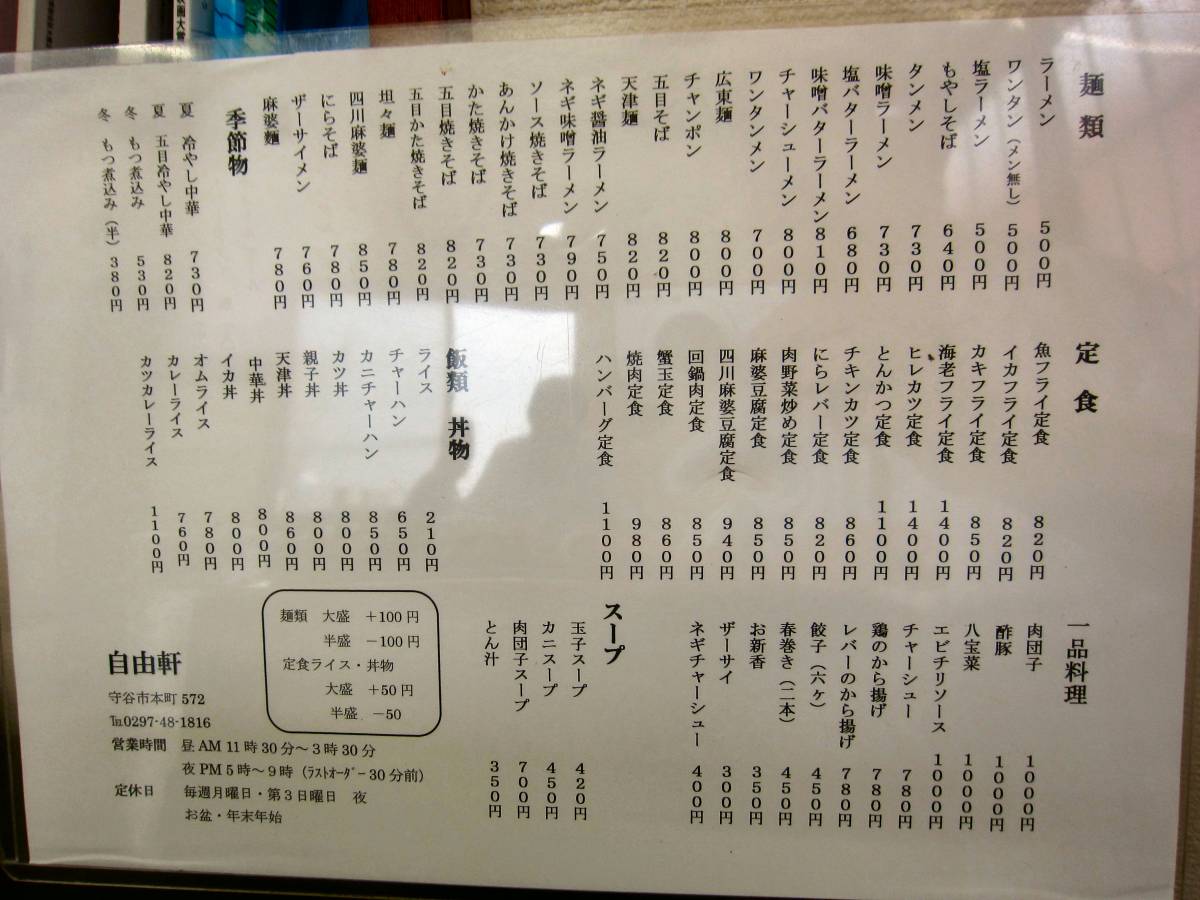 麺類
ラーメン 500円
ワンタン(メン無し) 500円
塩ラーメン 500円
もやしそば 640円
タンメン 730円
味噌ラーメン 730円
塩バターラーメン 680円
味噌バターラーメン 810円
チャーシューメン 800円
ワンタンメン 700円
広東麺 800円
チャンポン 800円
五目そば 820円
天津麺 820円
ネギ醤油ラーメン 750円
ネギ味噌ラーメン 790円
ソース焼きそば 730円
あんかけ焼きそば 730円
かた焼きそば 730円
五目焼きそば 820円
五目かた焼きそば 820円
坦々麺 780円
四川麻婆麺 850円
にらそば 780円
ザーサイメン 760円
麻婆麺 780円
季節物
夏 冷やし中華 730円
夏 五目冷やし中華 820円
冬 もつ煮込み 530円
冬 もつ煮込み(半) 380円
定食
魚フライ定食 820円
イカフライ定食 820円
カキフライ定食 850円
海老フライ定食 1400円
ヒレカツ定食 1400円
とんかつ定食 1100円
チキンカツ定食 860円
にらレバー定食 820円
肉野菜炒め定食 850円
麻婆豆腐定食 850円
四川麻婆豆腐定食 940円
回鍋肉定食 850円
蟹玉定食 860円
焼肉定食 980円
ハンバーグ定食 1100円
飯類 丼物
ライス 210円
チャーハン 650円
カニチャーハン 850円
カツ丼 800円
親子丼 800円
天津丼 860円
中華丼 800円
イカ丼 800円
オムライス 780円
カレーライス 760円
カツカレーライス 1100円
一品料理
肉団子 1000円
酢豚 1000円
八宝菜 1000円
エビチリソース 1000円
チャーシュー 780円
鶏のから揚げ 780円
レバーのから揚げ 780円
餃子(六ヶ) 450円
春巻き(二本) 450円
お新香 350円
ザーサイ 300円
ネギチャーシュー 400円
スープ
玉子スープ 420円
カニスープ 450円
肉団子スープ 700円
とん汁 350円
麺類 大盛 +100円
半盛 -100円
定食ライス・丼物
大盛 +50円
半盛 -50
自由軒
守谷市本町572
℡0297-48-1816
営業時間 昼AM11時30分~3時30分
夜PM5時~9時(ﾗｽﾄｵｰﾀﾞｰ30分前)
定休日 毎週月曜日・第3日曜日 夜
お盆・年末年始